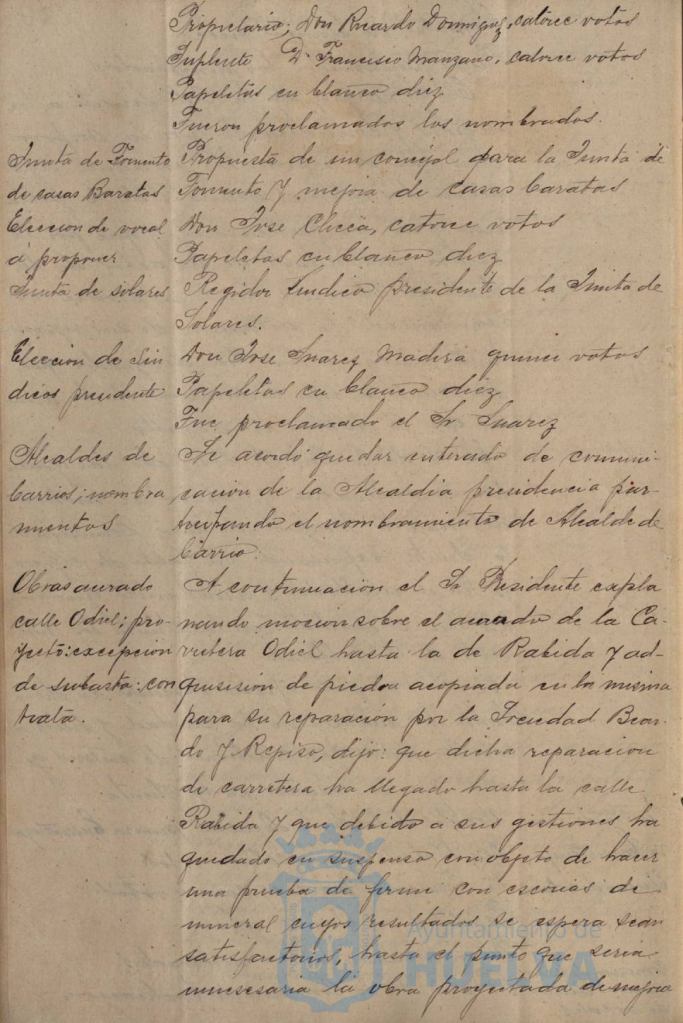 Propietario; Don Ricardo Dominguez, catorce votos
Suplente D. Francisco Manzano, catorce votos
Papeletas en blanco diez
Fueron proclamados los nombrados.
Junta de Fomento
de casas Baratas
Eleccion de vocal
á proponer
Propuesta de un concejal para la Junta de
Fomento y mejora de casas baratas
Don Jose Checa, catorce votos
Papeletas en blanco diez
Junta de solares
Regidor Sindico presidente de la Junta de
Solares.
Eleccion de Sin
dicos presidente
Don Jose Suarez Madera quince votos
Papeletas en blanco diez
Fue proclamado el Sr Suarez
Alcaldes de
barrios; nombra
mientos
Se acordó quedar enterado de comuni-
cacion de la Alcaldia presidencia par-
ticipando el nombramiento de Alcalde de
barrio.
Obras acerado
calle Odiel; pro-
yecto: excepcion
de subasta: con
trata.
A continuacion el Sr Presidente expla
nando mocion sobre el acerado de la Ca-
rretera Odiel hasta la de Rabida y ad-
quisisión de piedra acopiada en la misma
para su reparación por la Sociedad
do y Repiso, dijo: que dicha reparacion
de carretera ha llegado hasta la calle
Rabida y que debido a sus gestiones ha
quedado en suspenso con objeto de hacer
una prueba de firme con escorias de
mineral cuyos resultados se espera sean
satisfactorios, hasta el punto que seria
innecesaria la obra proyectada de mejora
Ayuntamiento de
HUELVA